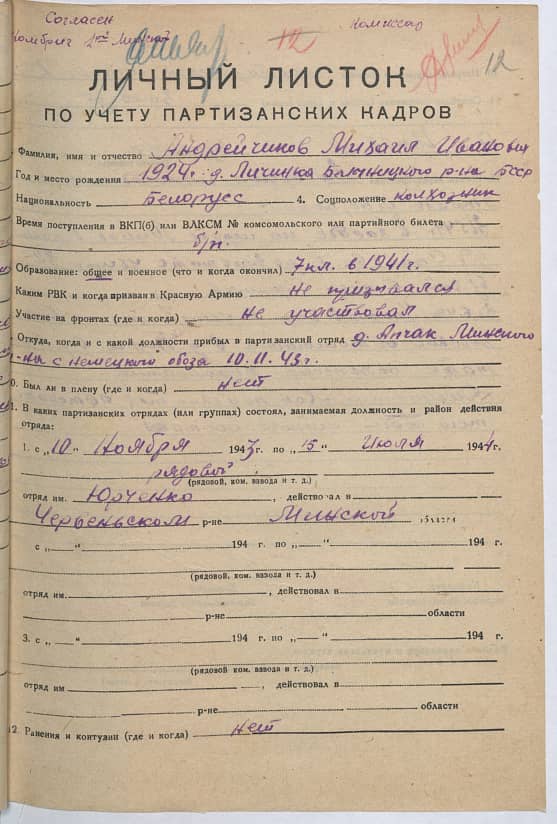 Согласен
Комбриг 2ой Минской
Комиссар
12
12
ЛИЧНЫЙ ЛИСТОК
ПО УЧЕТУ ПАРТИЗАНСКИХ КАДРОВ
Фамилия, имя и отчество Андрейчиков Михаил Иванович
Год и место рождения 1924 г. д. Личинка р-на БССР
Национальность Белорусс 4. Соцположение колхозник
Время поступления в ВКП(б) или ВЛКСМ № комсомольского или партийного билета
б/п.
Образование: общее и военное (что и когда окончил) 7 кл. в 1941 г.
Каким РВК и когда призван в Красную Армию не призывался
Участие на фронтах (где и когда) не участвовал
Откуда, когда и с какой должности прибыл в партизанский отряд д. Апчак Минского
р-на с немецкого обоза 10.11.43 г.
0. Был ли в плену (где и когда) нет
1. В каких партизанских отрядах (или группах) состоял, занимаемая должность и район действия
отряда:
1. с „10" Ноября 1943 г. по „15" Июля 1944 г.
рядовой
(рядовой, ком. взвода и т. д.)
отряд им. Юрченко, действовал в
Червеньском р-не Минской области
с „ " 194 г. по „ " 194 г.
(рядовой, ком. взвода и т. д.)
отряд им. , действовал в
р-не области
3. с „ " 194 г. по „ " 194 г.
(рядовой, ком. взвода и т. д.)
отряд им , действовал в
р-не области
2. Ранения и контузии (где и когда) нет